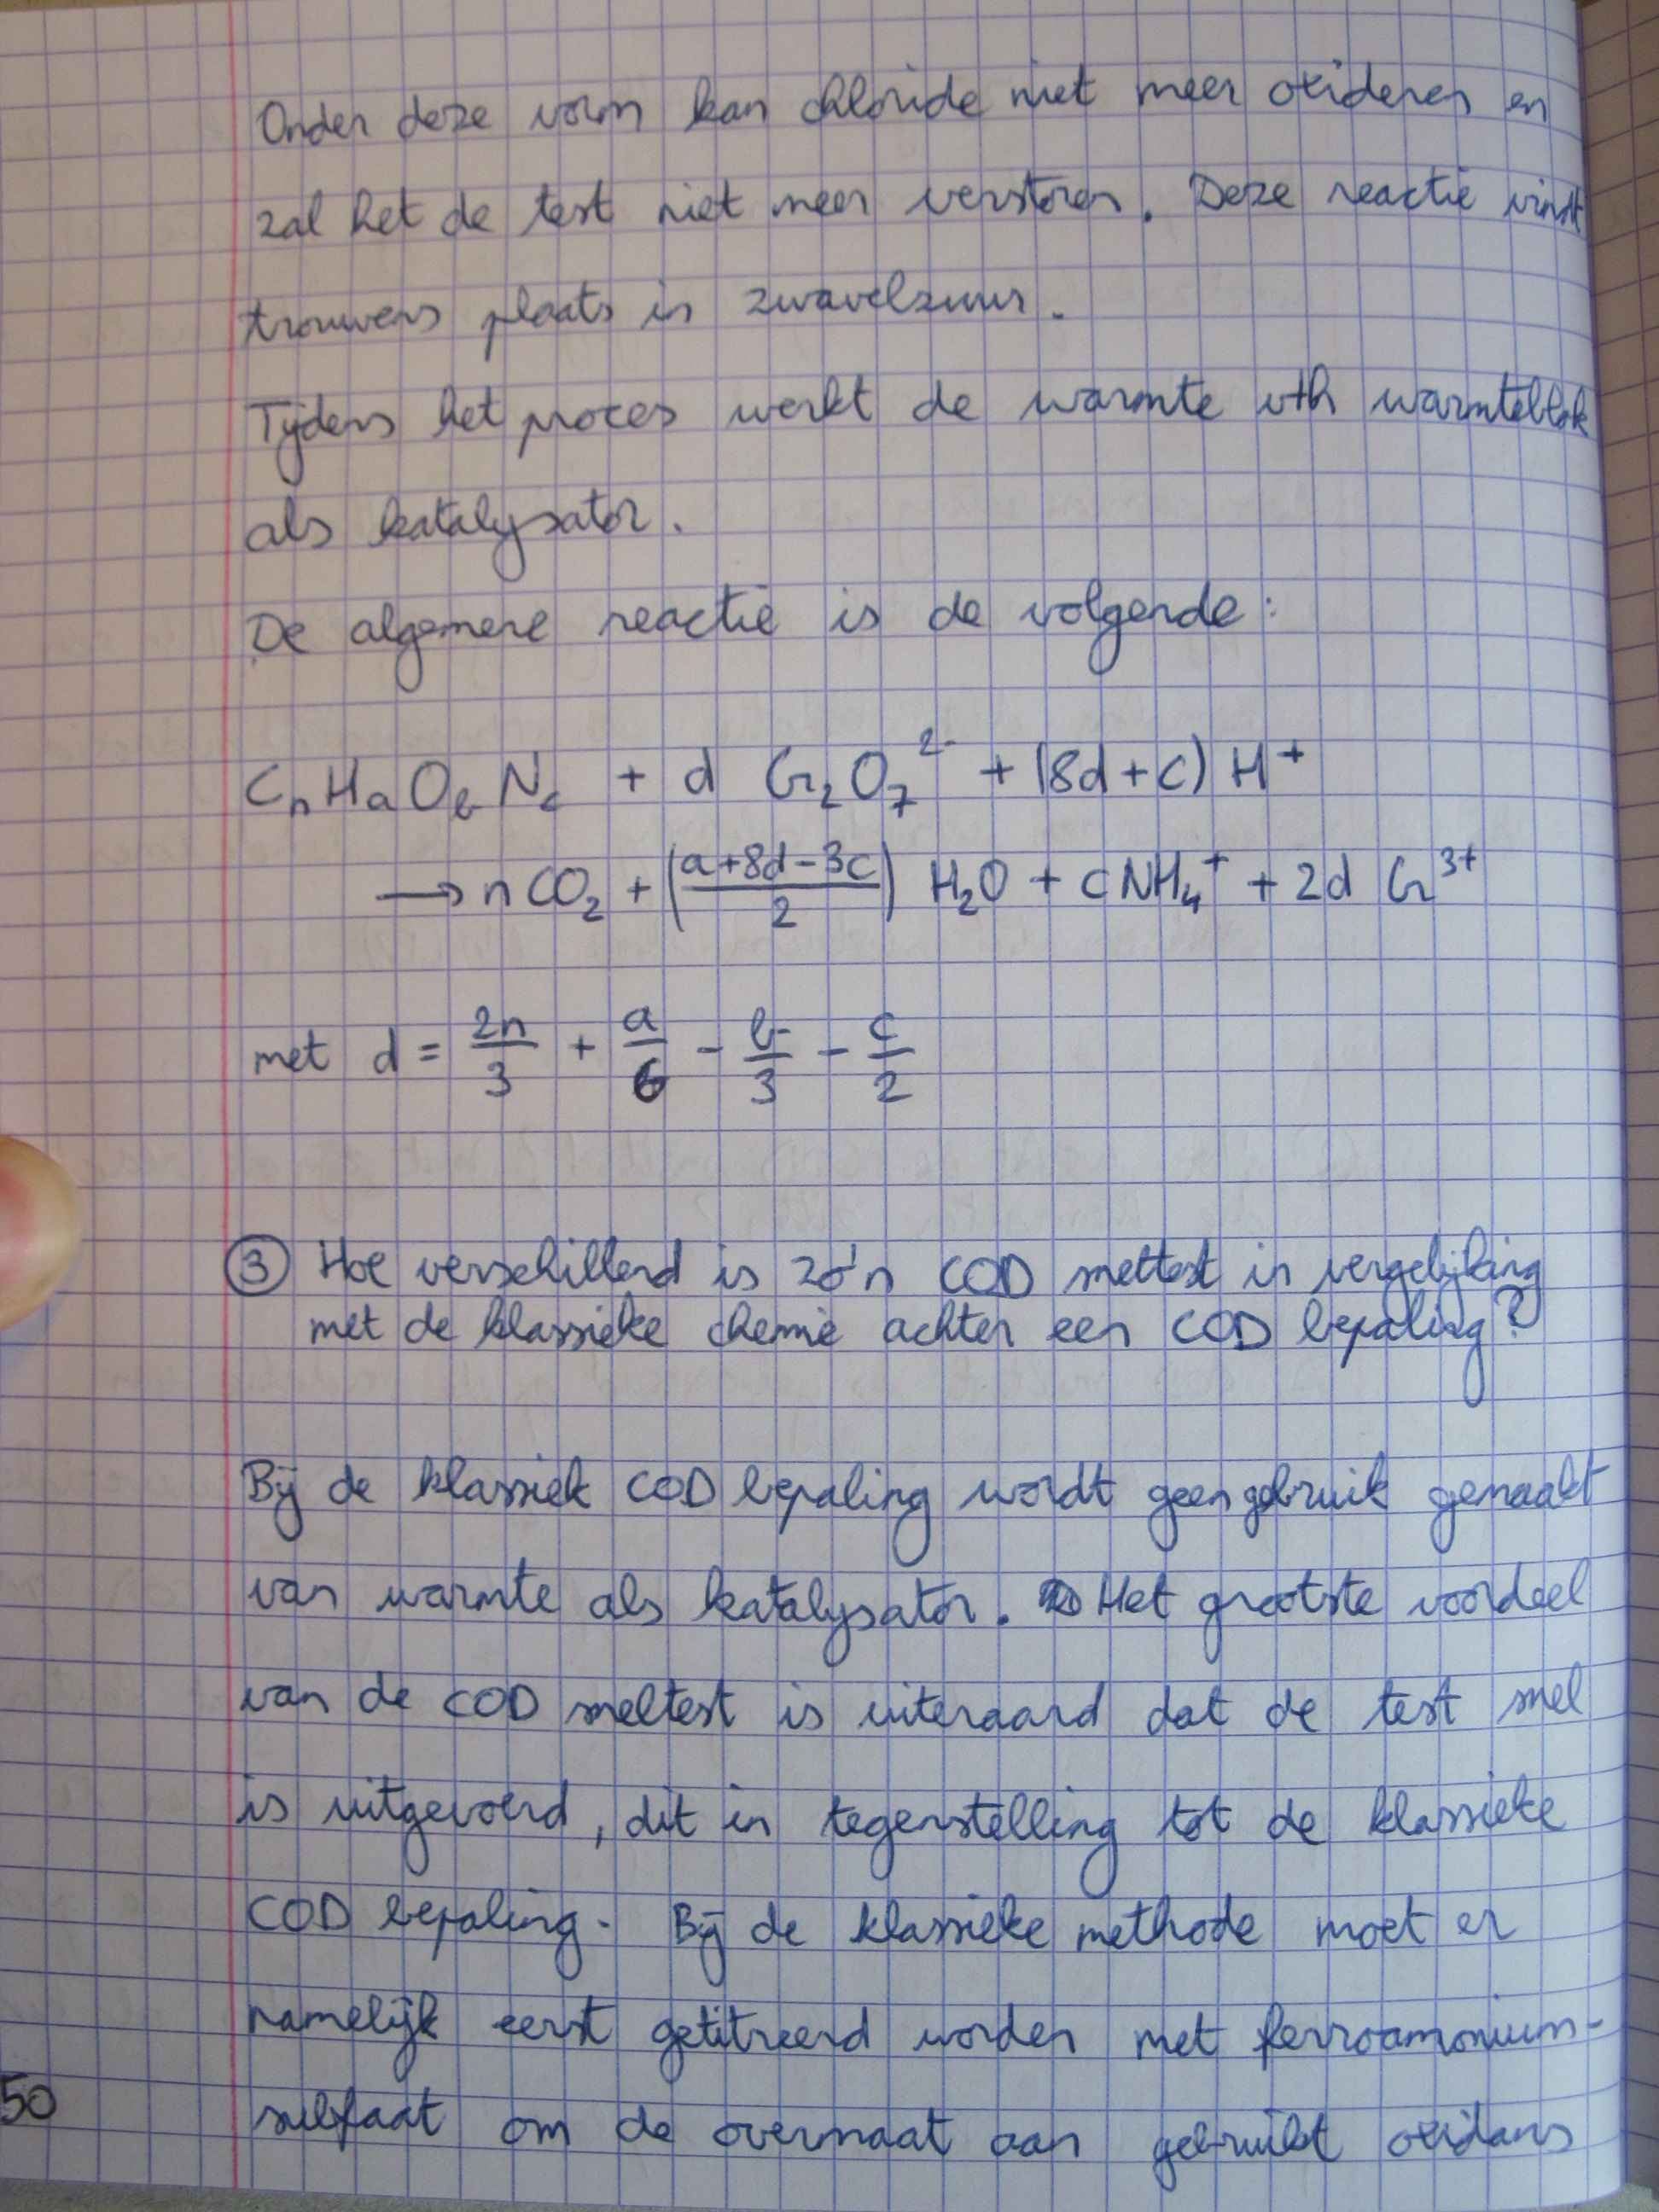 Onder deze vorm kan chloride niet meer oxideren en
zal het de test niet meer verstoren. Deze reactie vindt
trouwens plaats in zwavelzuur.
Tijdens het proces werkt de warmte vth warmteblok
als katalysator.
De algemene reactie is de volgende:
CₙHₐO_bN_c + d Cr₂O₇²⁻ + (8d+c) H⁺
→ n CO₂ + ((a+8d-3c)/2) H₂O + c NH₄⁺ + 2d Cr³⁺
met d = 2n/3 + a/6 - b/3 - c/2
③ Hoe verschillend is zo'n COD sneltest in vergelijking
met de klassieke chemie achter een COD bepaling?
Bij de klassiek COD bepaling wordt geen gebruik gemaakt
van warmte als katalysator. Het grootste voordeel
van de COD sneltest is uiteraard dat de test snel
is uitgevoerd, dit in tegenstelling tot de klassieke
COD bepaling. Bij de klassieke methode moet er
namelijk eerst getitreerd worden met ferroamonium-
50 sulfaat om de overmaat aan gebruikt oxidans